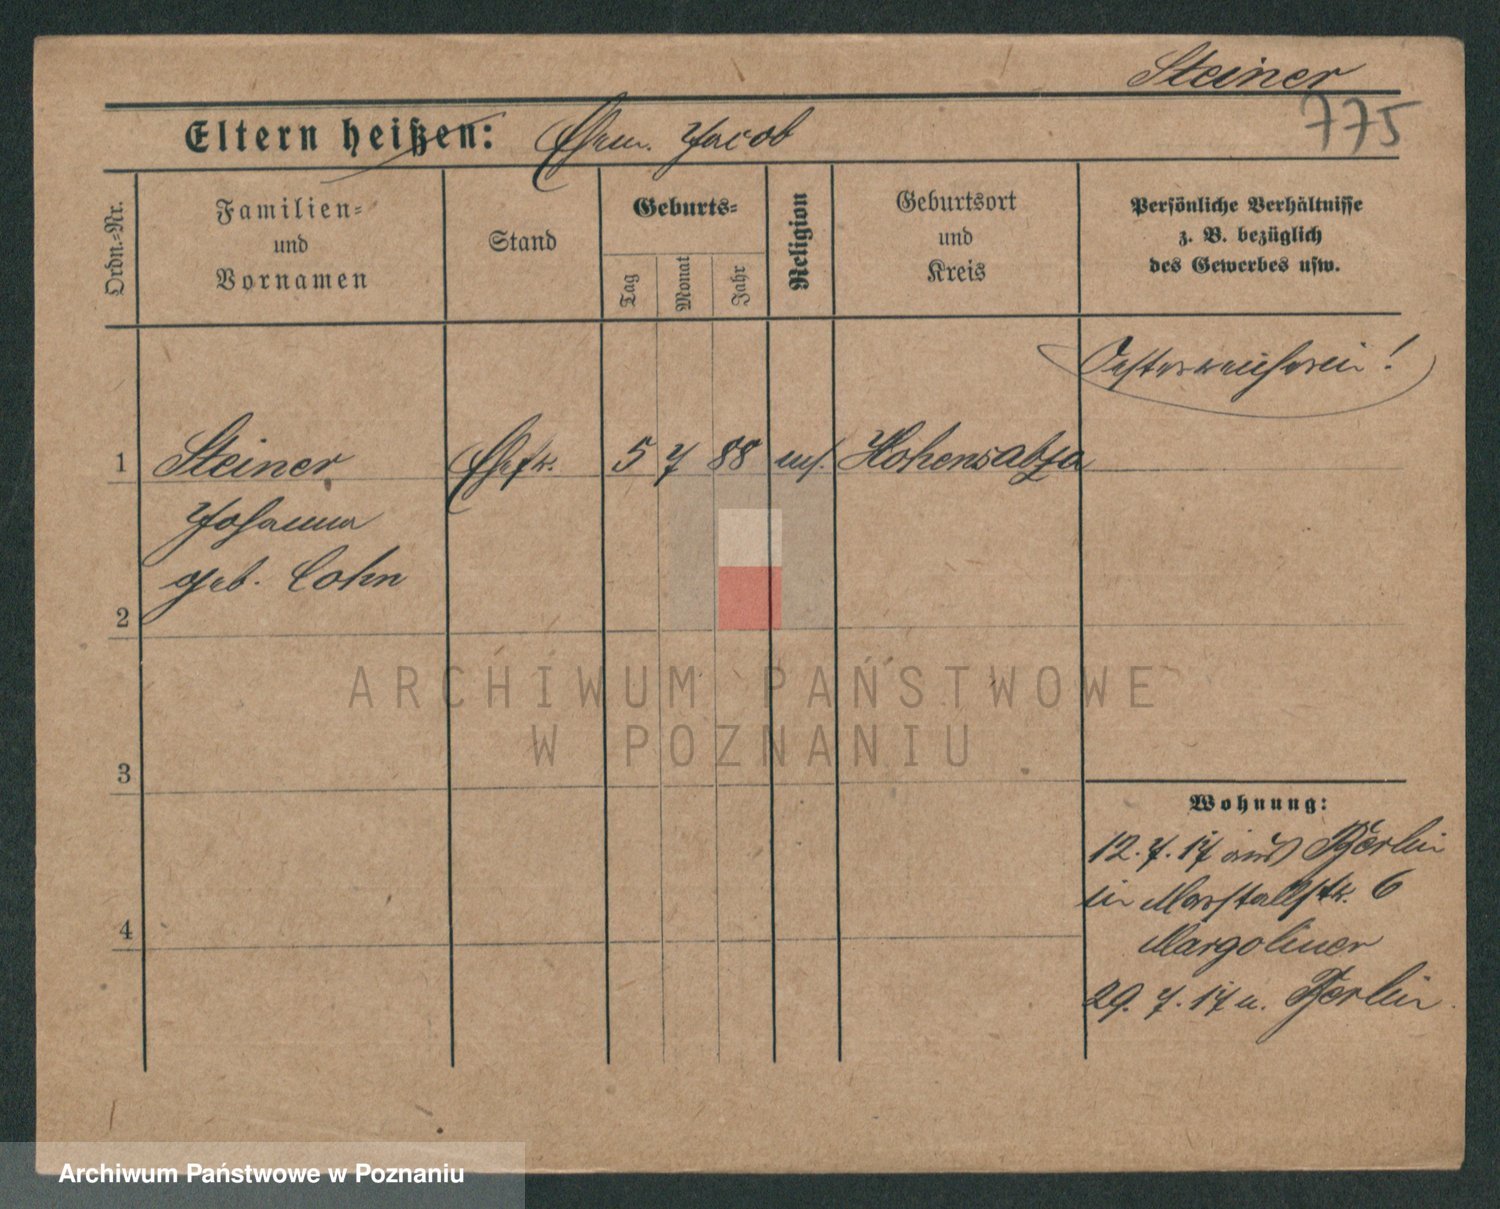 Steiner
775
Eltern heißen: Ehem. Jacob
Ordn.-Nr.
Familien-
und
Vornamen
Stand
Geburts-
Tag
Monat
Jahr
Religion
Geburtsort
und
Kreis
Persönliche Verhältnisse
z. B. bezüglich
des Gewerbes usw.
Oesterreicherin!
1 Steiner Ehefr. 5 7 88 mos. Hohensalza
Johanna
geb. Cohn
2
3
4
Wohnung:
12. 7. 17 aus Berlin
in Marstallstr. 6
Margoliner
29. 7. 17 n. Berlin
ARCHIWUM PAŃSTWOWE
W POZNANIU
Archiwum Państwowe w Poznaniu